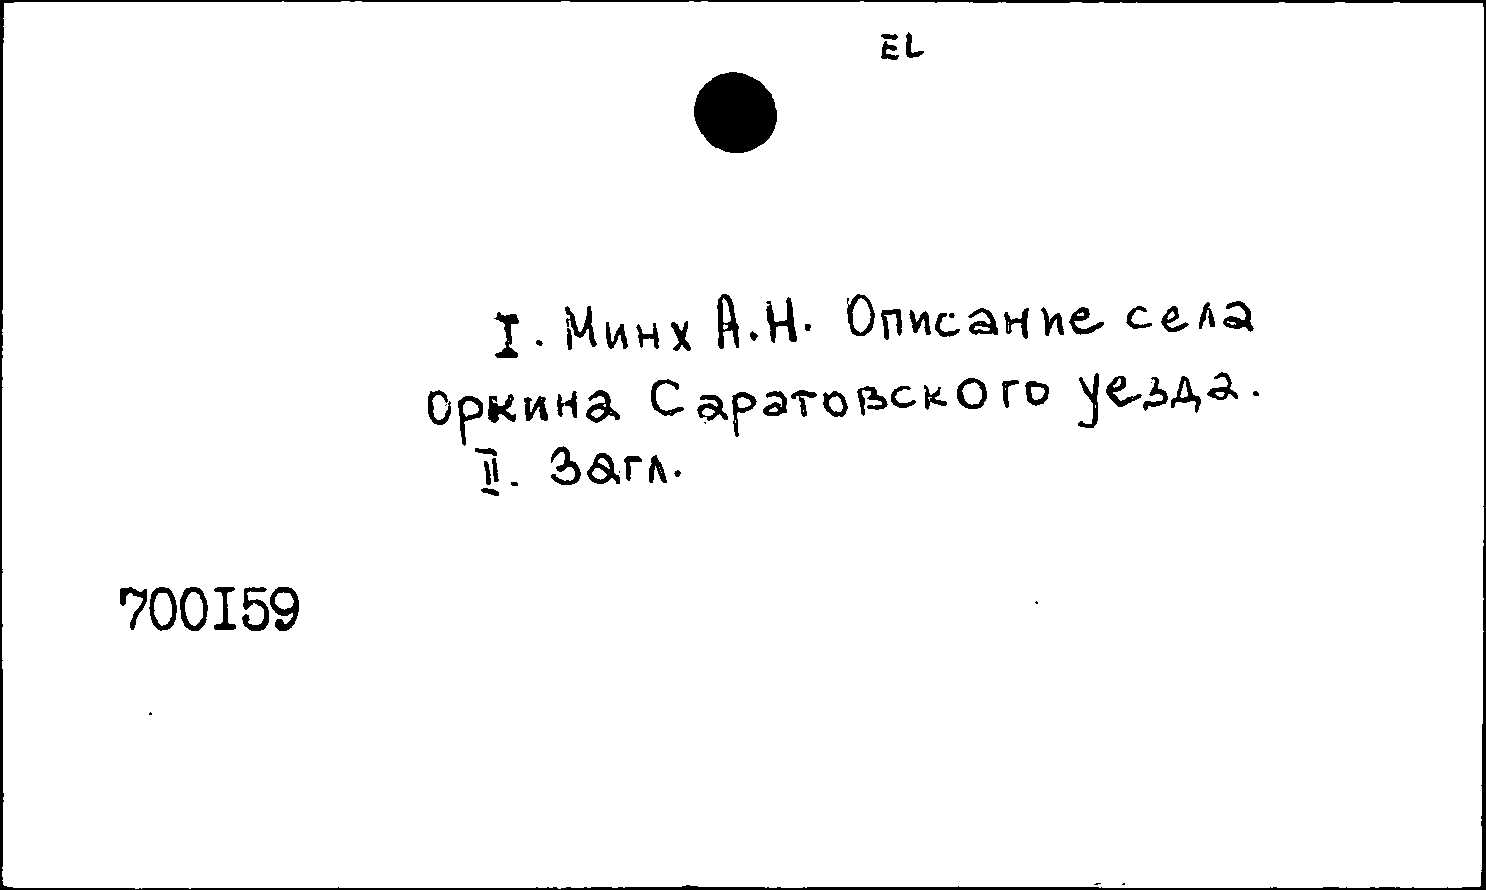 EL
I. Минх А.Н. Описание села
Оркина Саратовского уезда.
II. Загл.
700I59